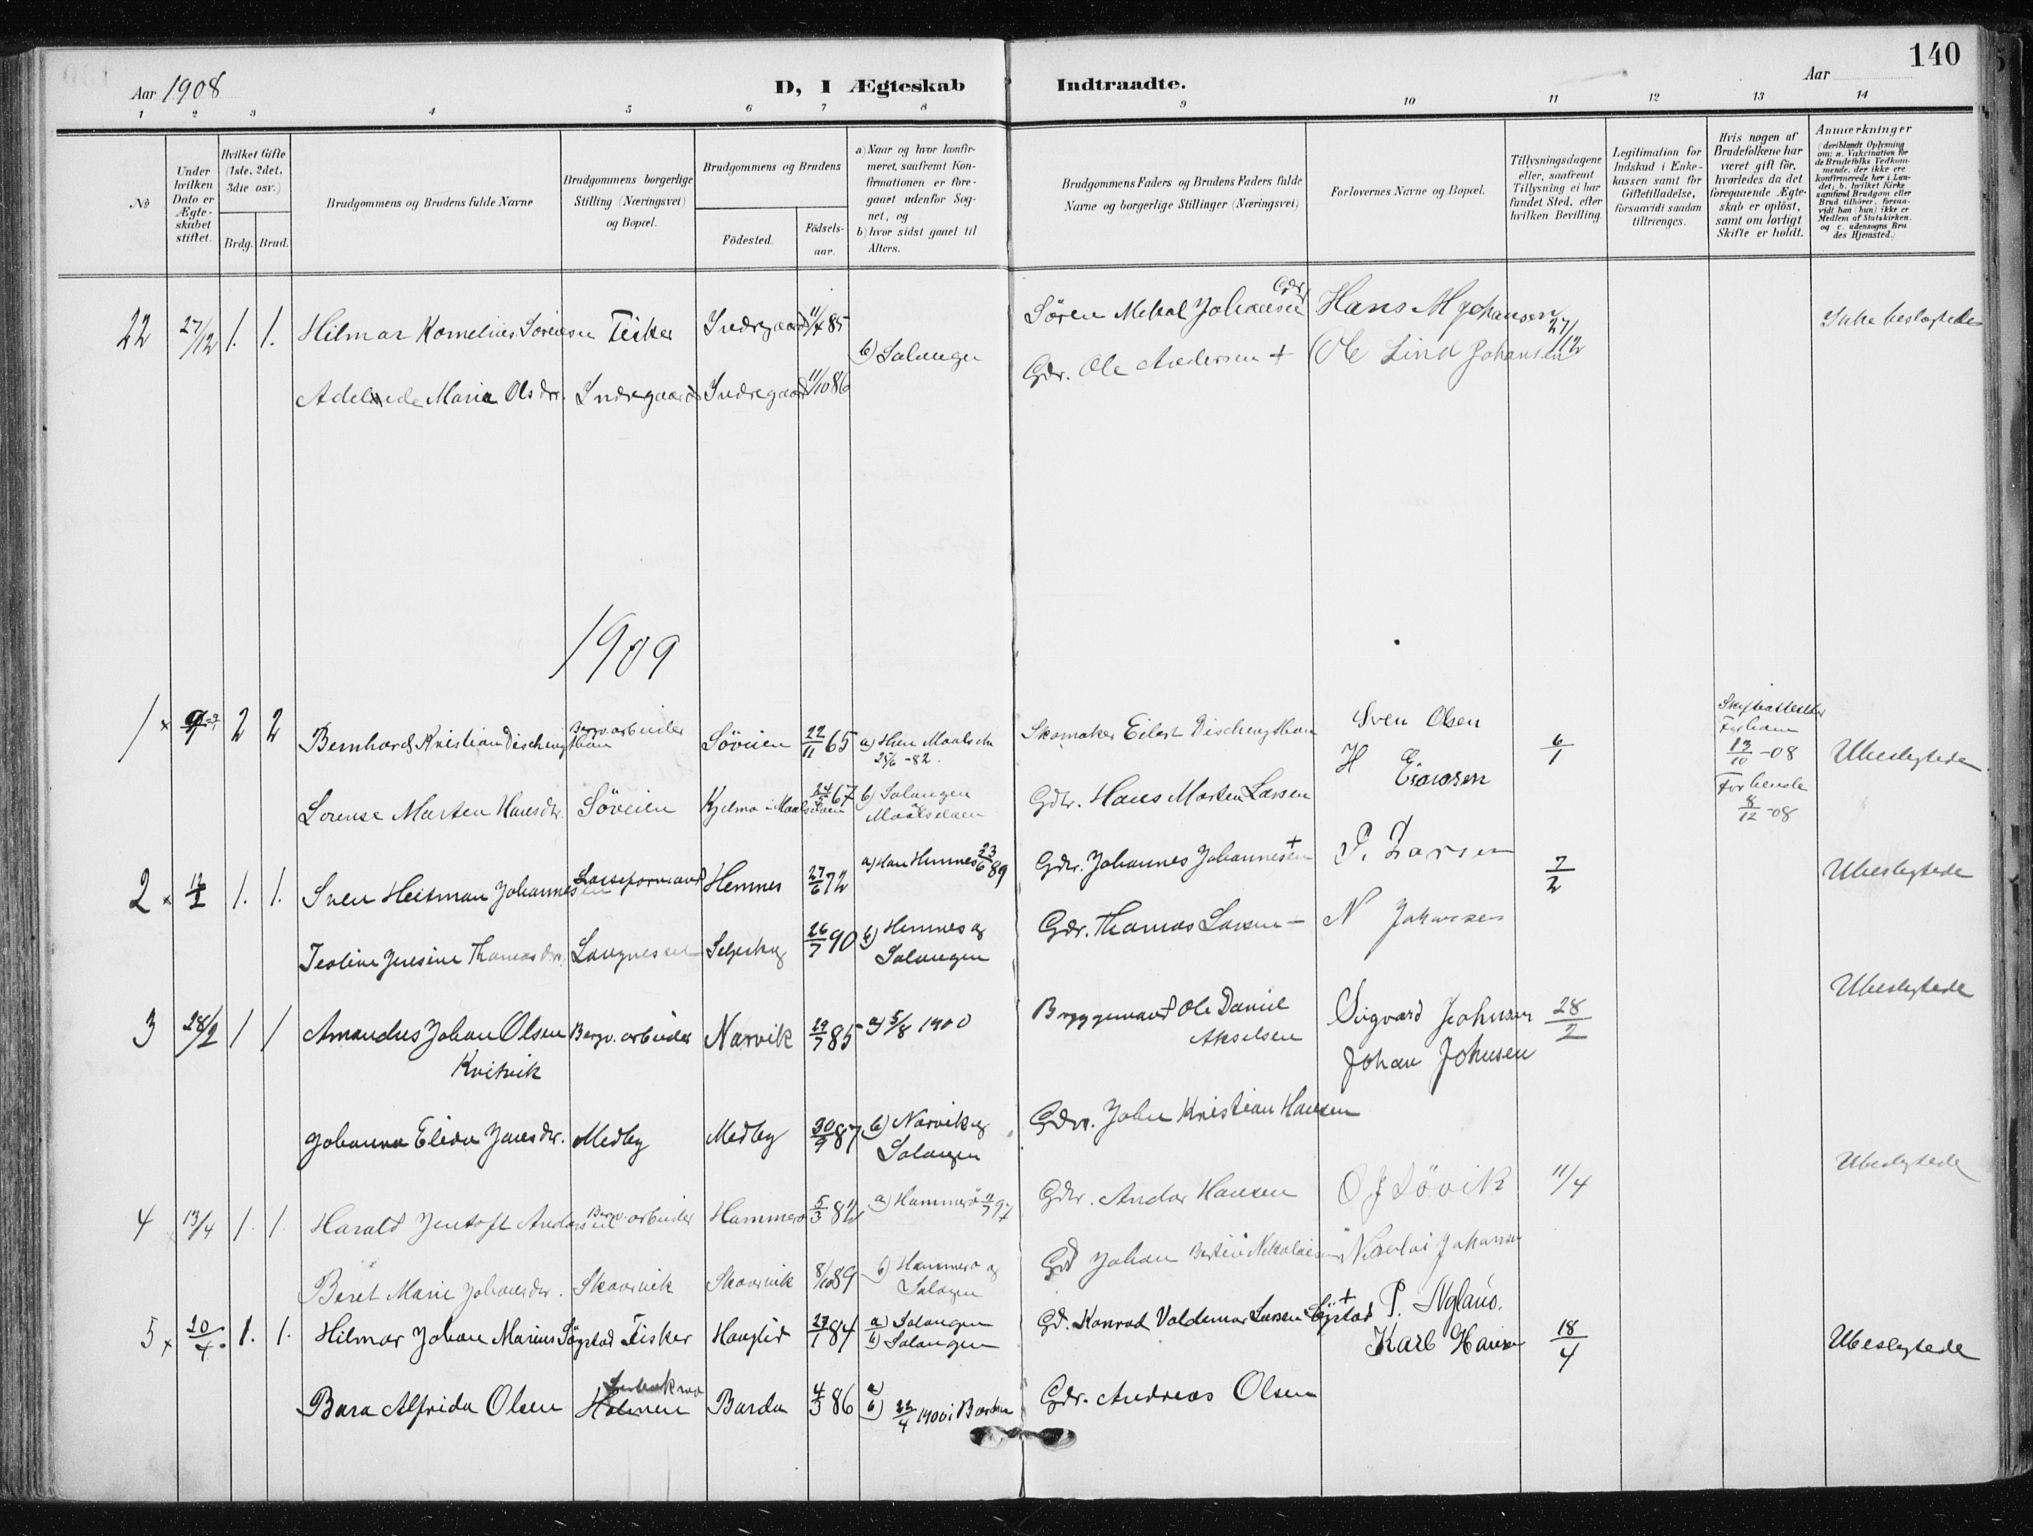 140
Aar 1908
D, I Ægteskab Indtraadte.
Aar
1 2 3 4 5 6 7 8 9 10 11 12 13 14
No
Under hvilken Dato er Ægteskabet stiftet.
Hvilket Gifte (1ste, 2det, 3die osv.)
Brdg. Brud.
Brudgommens og Brudens fulde Navne
Brudgommens borgerlige Stilling (Næringsvei) og Bopæl.
Brudgommens og Brudens
Fødested.
Fødselsaar.
a) Naar og hvor konfirmeret, saafremt Konfirmationen er foregaaet udenfor Sognet, og
b) hvor sidst gaaet til Alters.
Brudgommens Faders og Brudens Faders fulde Navne og borgerlige Stillinger (Næringsvei)
Forlovernes Navne og Bopæl.
Tillysningsdagene eller, saafremt Tillysning ei har fundet Sted, efter hvilken Bevilling.
Legitimation for Indskud i Enkekassen samt for Giftetilladelse, forsaavidt saadan tiltrænges.
Hvis nogen af Brudefolkene har været gift før, hvorledes da det foregaaende Ægteskab er opløst, samt om lovligt Skifte er holdt.
Anmærkninger (deriblandt Oplysning om: a. Vakcination for de Brudefolks Vedkommende, der ikke ere konfirmerede her i Landet; b. hvilket Kirkesamfund Brudgom eller Brud tilhører, forsaavidt han (hun) ikke er Medlem af Statskirken. og c. udensogns Brudes Hjemsted.)
22 27/12 1. 1. Hilmar Kornelius Sörensen Fisker Indregaard 11/4 85
Gdr. Sören Mekal Johansen Hans M Johansen 27/12 Ikke beslegtede
b) Salangen
Adelaide Marie Olsdr. Indregaard Indregaard 11/10 86
Gdr. Ole Andersen + Ole Lind Johansen
1909
1 x 2 2 Bernhard Kristian Dischengthun Bergv.arbeider Söveien 22/11 65 a)
25/6 -82.
Skomaker Eilert Dischengthun Sven Olsen 6/1
Skifteattester
For ham
13/10 -08
Ubeslegtede
Lorense Marten Hansdr. Söveien Kjelmo i Maalselven 24/5 67 b) Salangen
Maalselven
Gdr. Hans Morten Larsen H
For hende
8/12 -08
2 x 1. 1. Sven Heitman Johannesen Hemnes 27/6 72 a) Hemnes 23/6 89
Gdr. Johannes Johannesen + P. Larsen 7/2 Ubeslegtede
Jensine Thomasdr. Langnesset 26/7 90 b) Hemnes og
Salangen
Gdr. Thomas Larsen N Johansen
3 28/2 1 1 Amandus Johan Olsen Bergv.arbeider Narvik 29/7 85 a) 5/8 1900
Kvitvik
Bryggemand Ole Daniel
Akselsen
Sigvard Johnsen 28/2
Johan Johnsen
Ubeslegtede
Johanna Elida Jensdr. Medby Medby 30/9 87 b) Narvik og
Salangen
Gdr. John Kristian Hansen
4 13/4 1. 1. Harald Jentoft Andorsen Bergv.arbeider Hammerö 5/3 82 a) Hammerö 11/7 97
Gdr. Andor Hansen O J Lövik 11/4 Ubeslegtede
Beret Marie Johansdr. Skaarvik Skaarvik 8/10 89 b) Hammerö og
Salangen
Gd Johan Bertin Nikolaisen Nikolai Johansen
5 x 20/4 1. 1. Hilmar Johan Marius Søgstad Fisker Hauglid 27/1 84 a) Salangen
b) Salangen
Gd. Konrad Valdemar Larsen Søgstad + P. Nyland.
Karl Hansen 18/4 Ubeslegtede
Bara Alfrida Olsen Holmen Bardu 4/3 86 a)
b) 22/4 1900 i Bardu
Gdr. Andreas Olsen